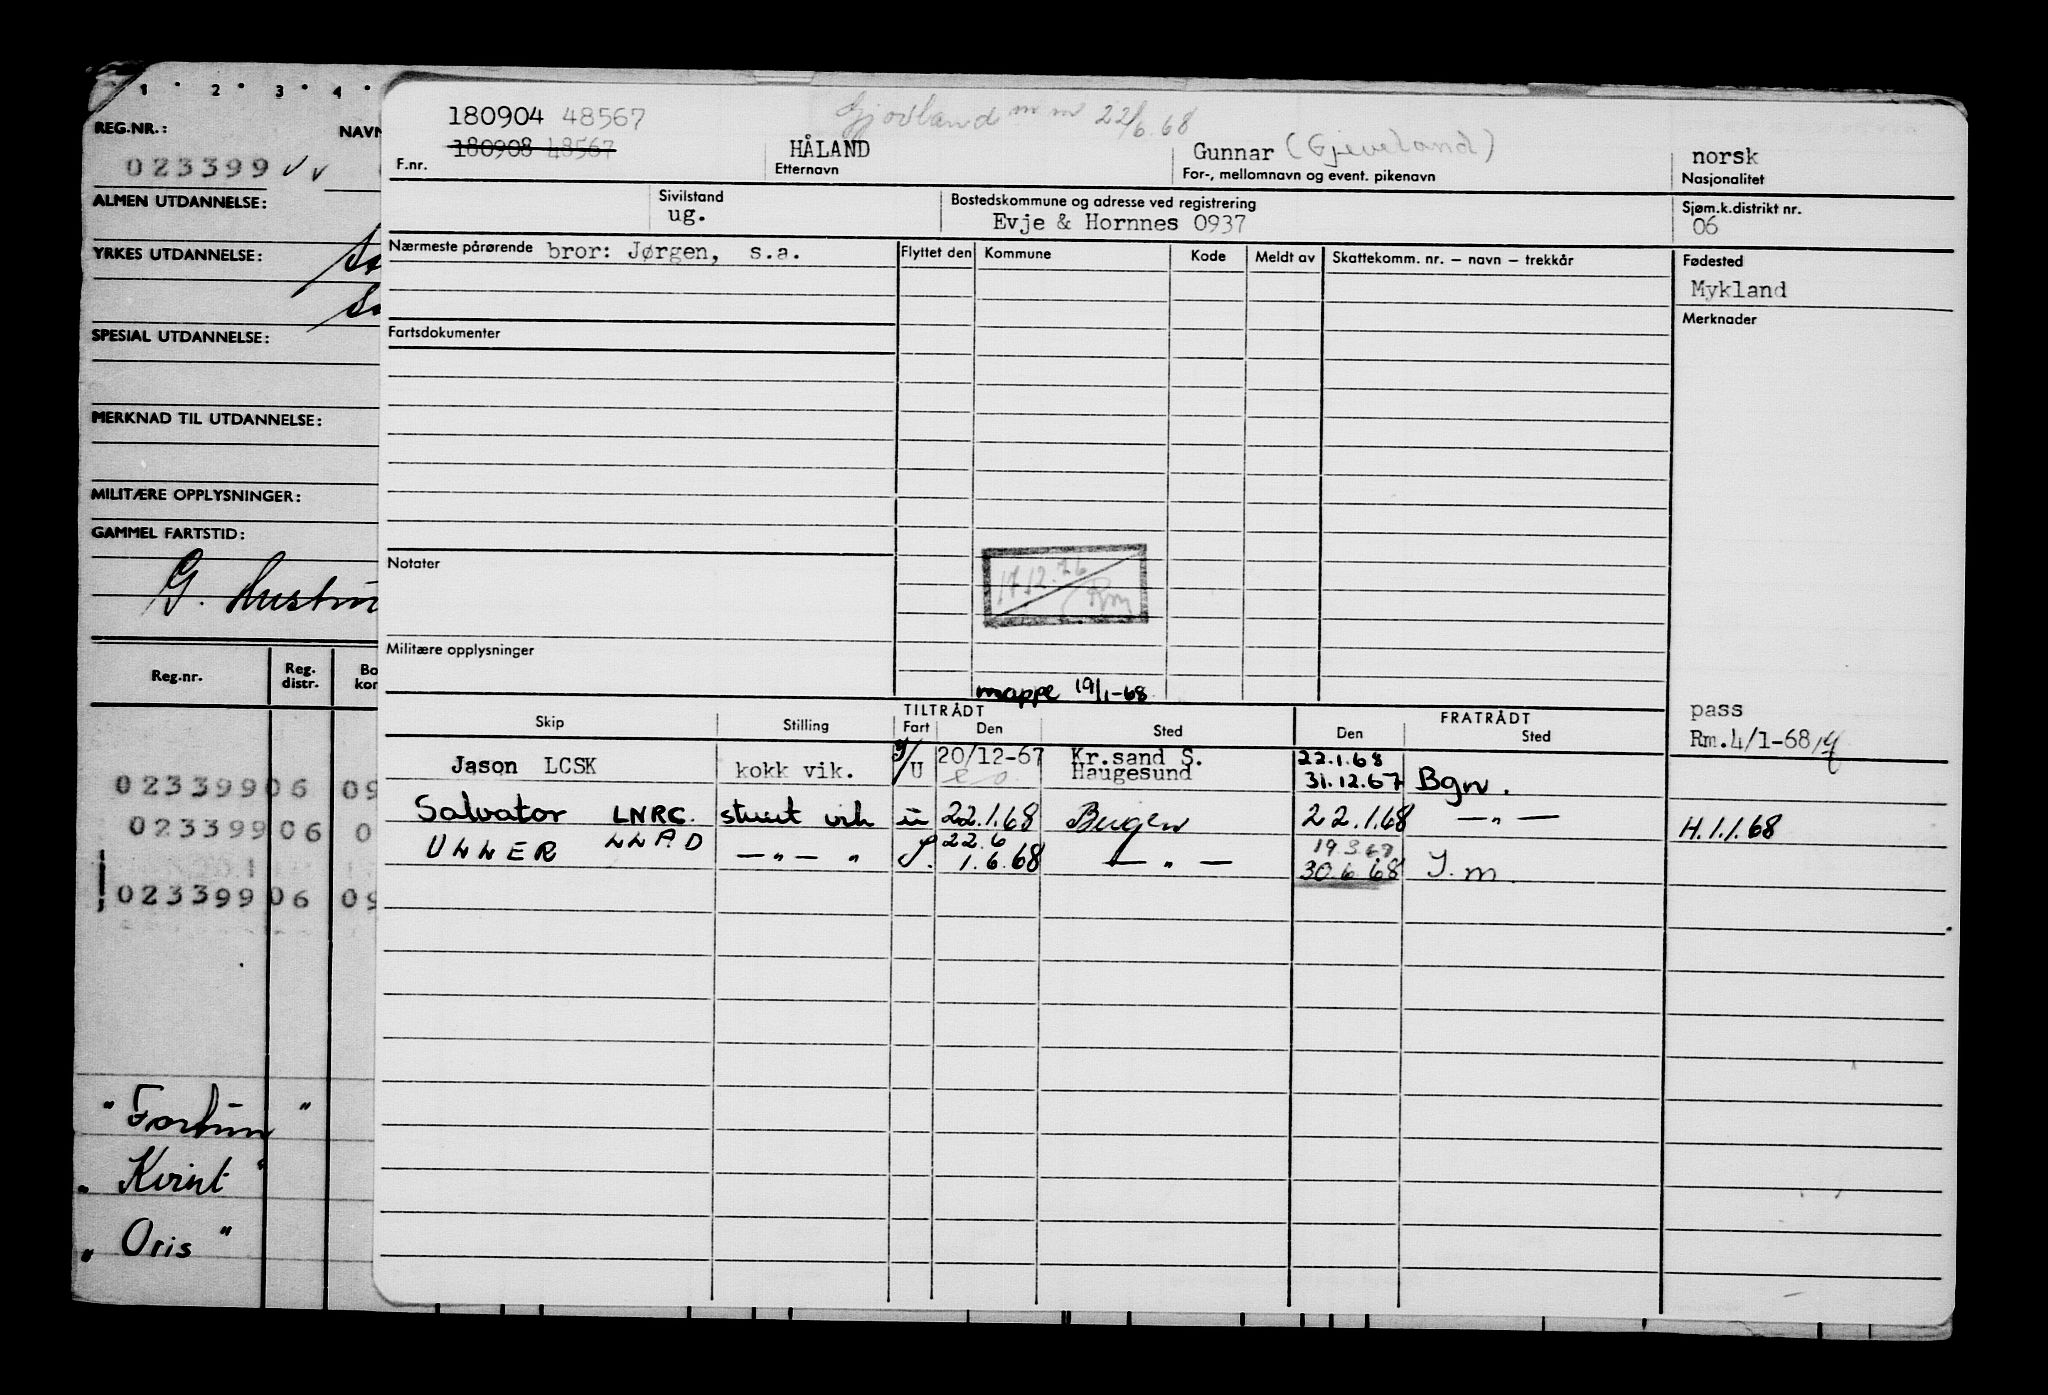 1 2 3 4
REG.NR.:
NAVN
023399
ALMEN UTDANNELSE:
YRKES UTDANNELSE:
SPESIAL UTDANNELSE:
MERKNAD TIL UTDANNELSE:
MILITÆRE OPPLYSNINGER:
GAMMEL FARTSTID:
Reg.nr. Reg. distr. Bo kor
023399 06 09
023399 06 0
023399 06 09
" Fortun "
" Kvint "
" Oris "
180904 48567
Gjovland mm 22/6.68
180908 48567
HÅLAND
Gunnar (Gjeveland)
norsk
F.nr.
Etternavn
For-, mellomnavn og event. pikenavn
Nasjonalitet
Sivilstand
Bostedskommune og adresse ved registrering
Sjøm.k.distrikt nr.
ug.
Evje & Hornnes 0937
06
Nærmeste pårørende bror: Jørgen, s.a.
Flyttet den Kommune Kode Meldt av Skattekomm. nr. – navn – trekkår
Fødested
Mykland
Fartsdokumenter
Merknader
Notater
17.12.76
Rm
Militære opplysninger
mappe 19/1-68
TILTRÅDT FRATRÅDT
Skip Stilling Fart Den Sted Den Sted
pass
Rm.4/1-68
Jason LCSK kokk vik. /U 20/12-67 Kr.sand S. 22.1.68
Haugesund 31.12.67 Bgn.
Salvator LNRG. stuert vik u 22.1.68 Bergen 22.1.68 — " —
H.1.1.68
ULLER LLAD — " — " 22.6 19.3.69
1.6.68 — " — 30.6.68 I.m.